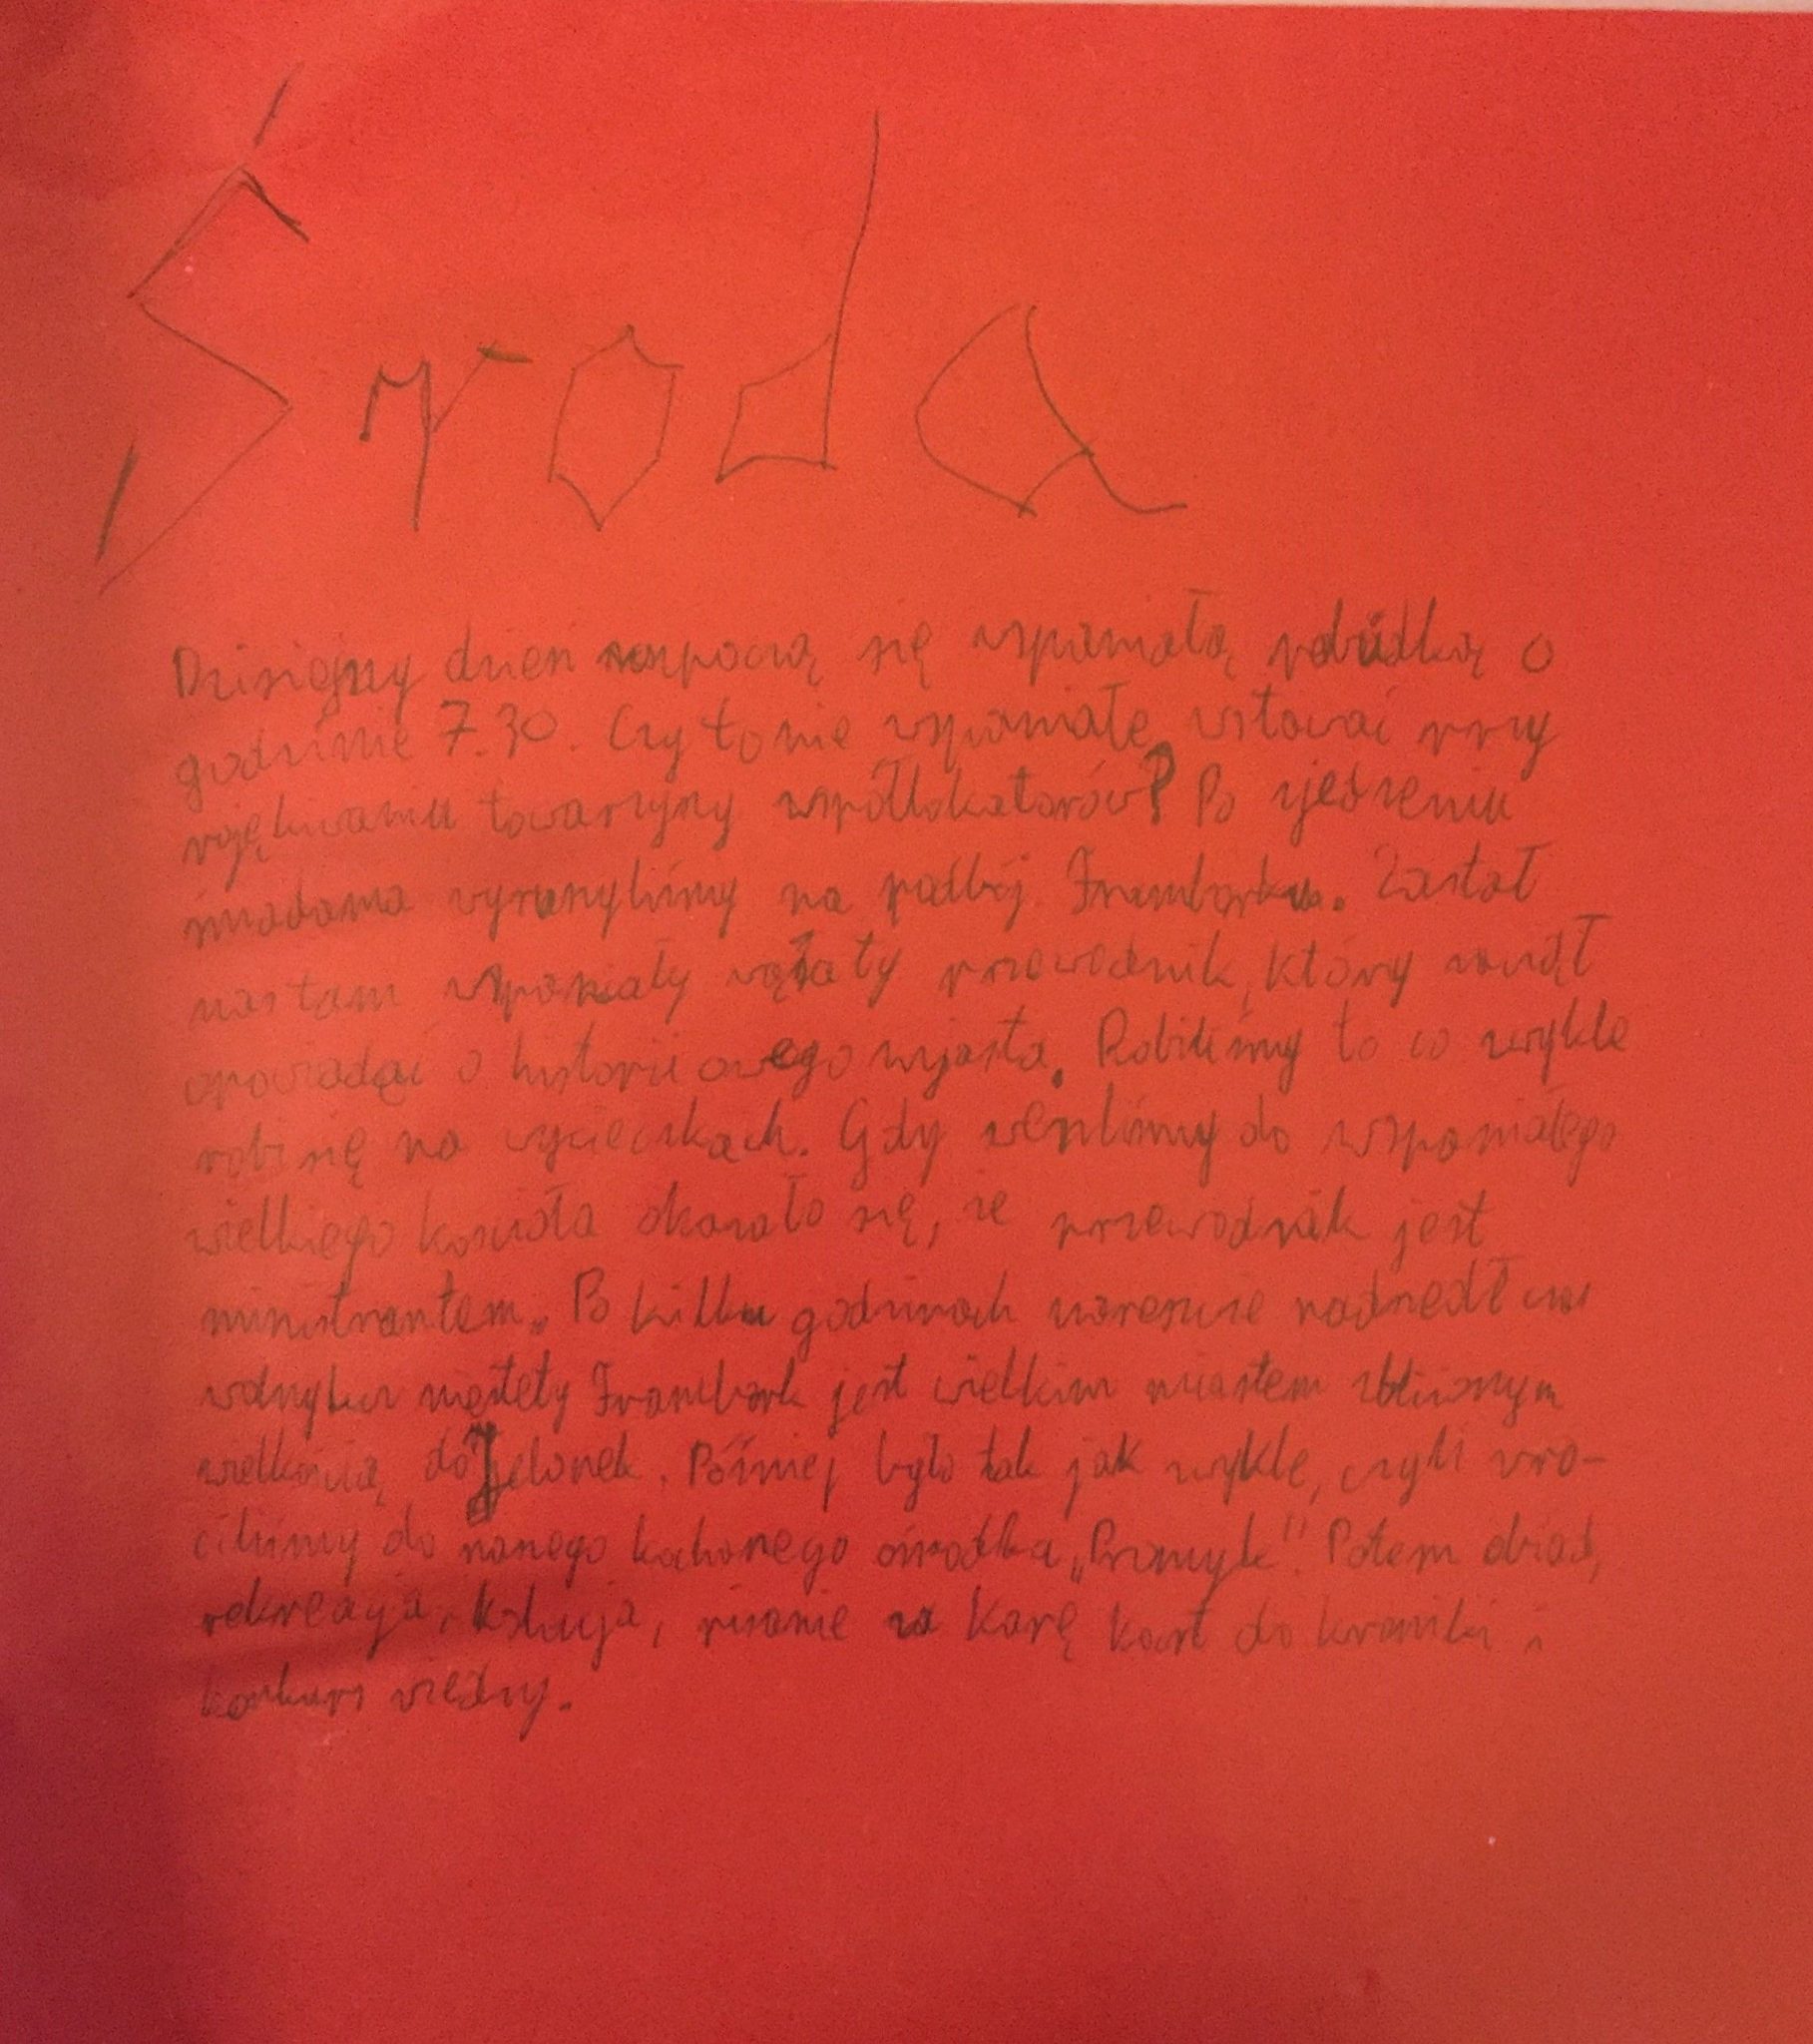 Środa
Dzisiejszy dzień rozpoczą się wspaniałą pobudką o
godzinie 7.30. Czy to nie wspaniałe wstawać przy
pojękiwaniu towarzyszy współlokatorów? Po zjedzeniu
śniadania wyruszyliśmy na podbój Fromborka. Zastał
nas tam wspaniały wąsaty przewodnik, który zaczął
opowiadać o historii owego miasta. Robiliśmy to co zwykle
robi się na wycieczkach. Gdy weszliśmy do wspaniałego
wielkiego kościoła okazało się, że przewodnik jest
ministrantem. Po kilku godzinach nareszcie nadszedł czas
niestety Frombork jest wielkim miastem zbliżonym
wielkością do Jelonek. Później było tak jak zwykle, czyli wró-
ciliśmy do naszego kochanego ośrodka „Promyk". Potem obiad,
rekreacja, kolacja, pisanie za karę kart do kroniki i
konkurs wiedzy.